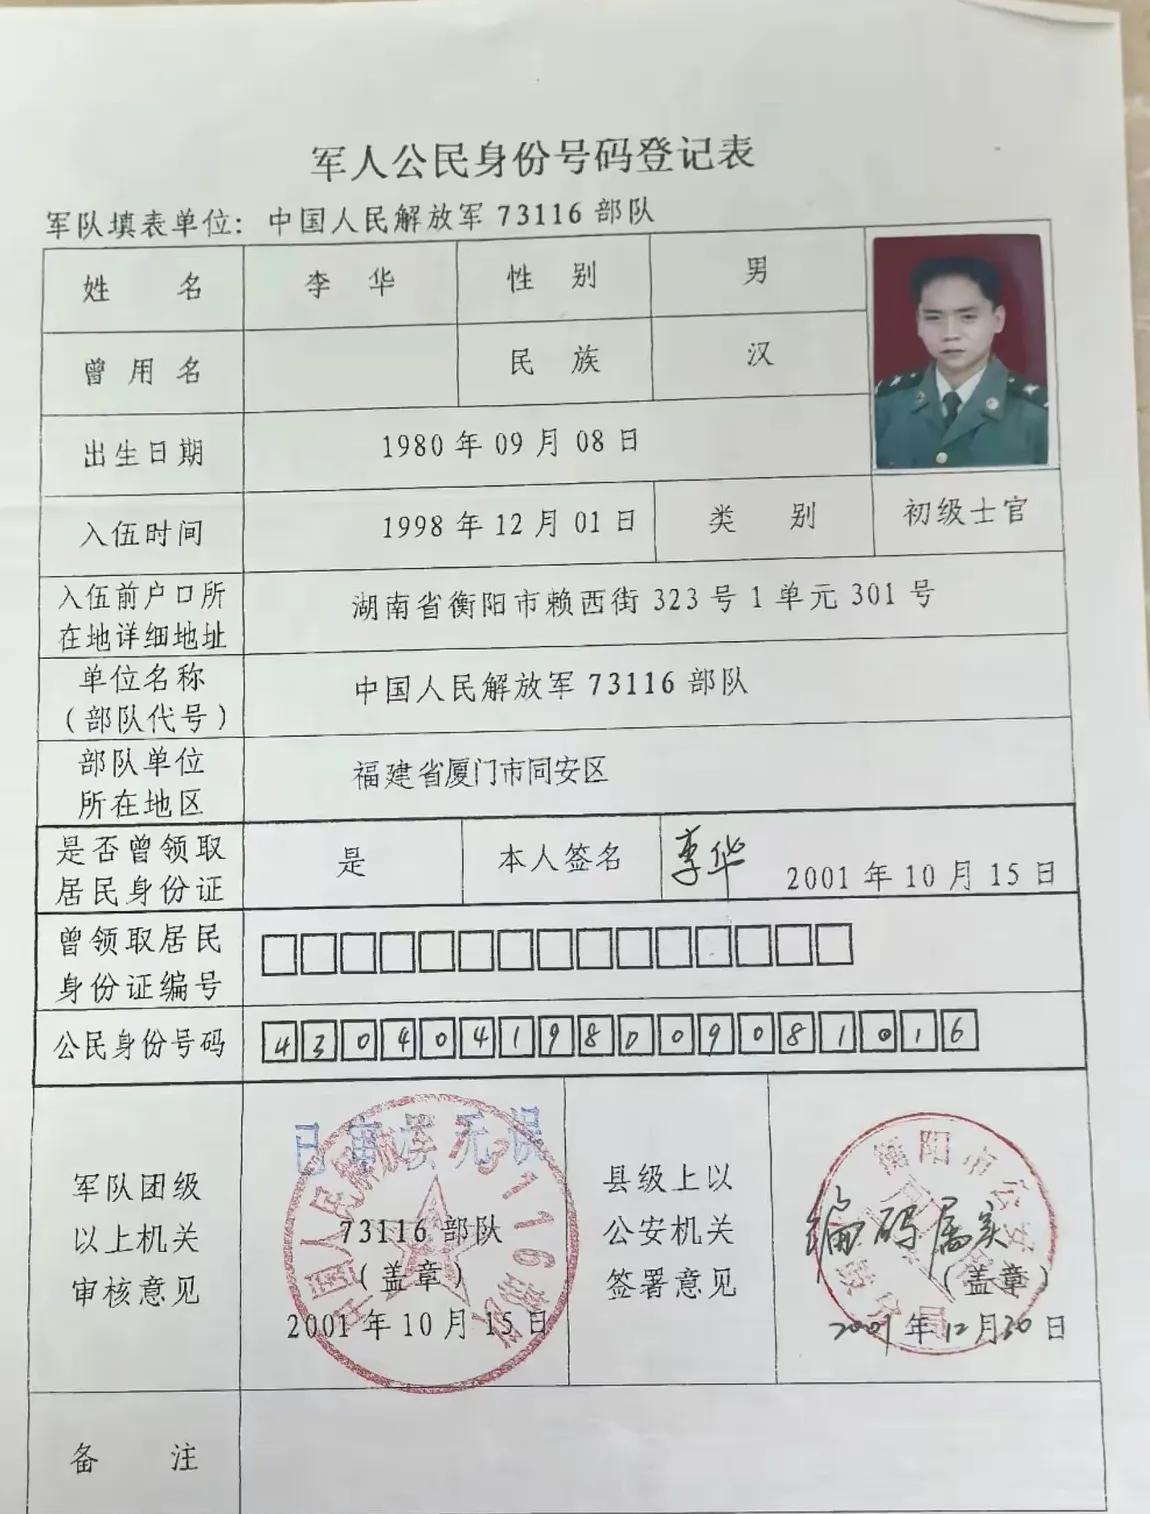 军人公民身份号码登记表
军队填表单位：中国人民解放军 73116 部队
姓 名 李 华 性 别 男
曾 用 名 民 族 汉
出生日期 1980 年 09 月 08 日
入伍时间 1998 年 12 月 01 日 类 别 初级士官
入伍前户口所
在地详细地址 湖南省衡阳市赖西街 323 号 1 单元 301 号
单位名称
（部队代号） 中国人民解放军 73116 部队
部队单位
所在地区 福建省厦门市同安区
是否曾领取
居民身份证 是 本人签名 李华 2001 年 10 月 15 日
曾领取居民
身份证编号
公民身份号码 430404198009081016
军队团级
以上机关
审核意见
已审核无误
中国人民解放军73116部队
73116 部队
（盖章）
2001 年 10 月 15 日
县级上以
公安机关
签署意见
衡阳市公安
编码属实
（盖章）
2001 年 12 月 30 日
备 注